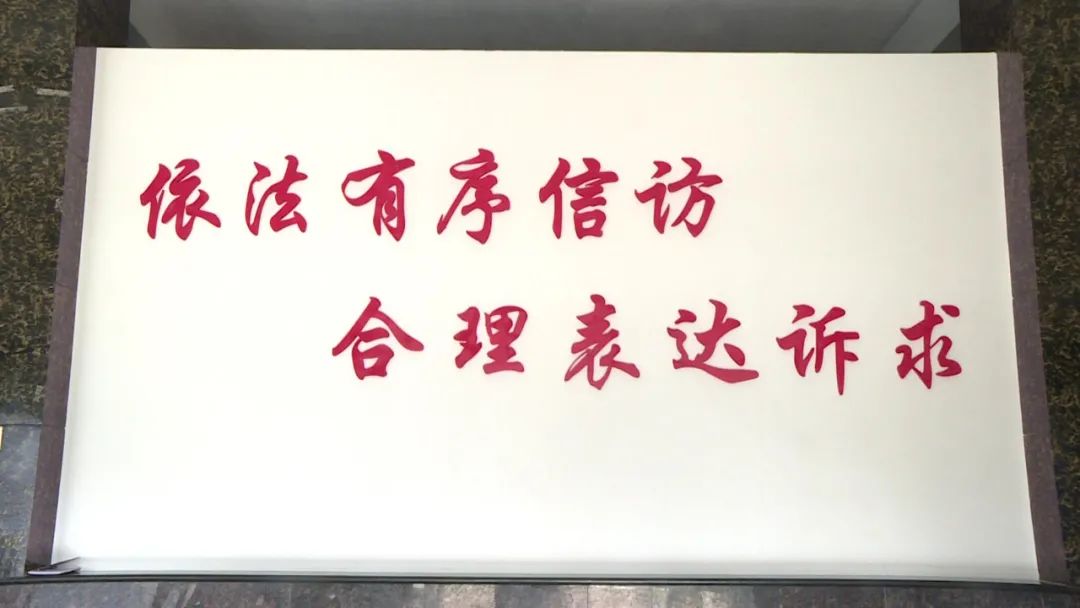 依法有序信访
合理表达诉求